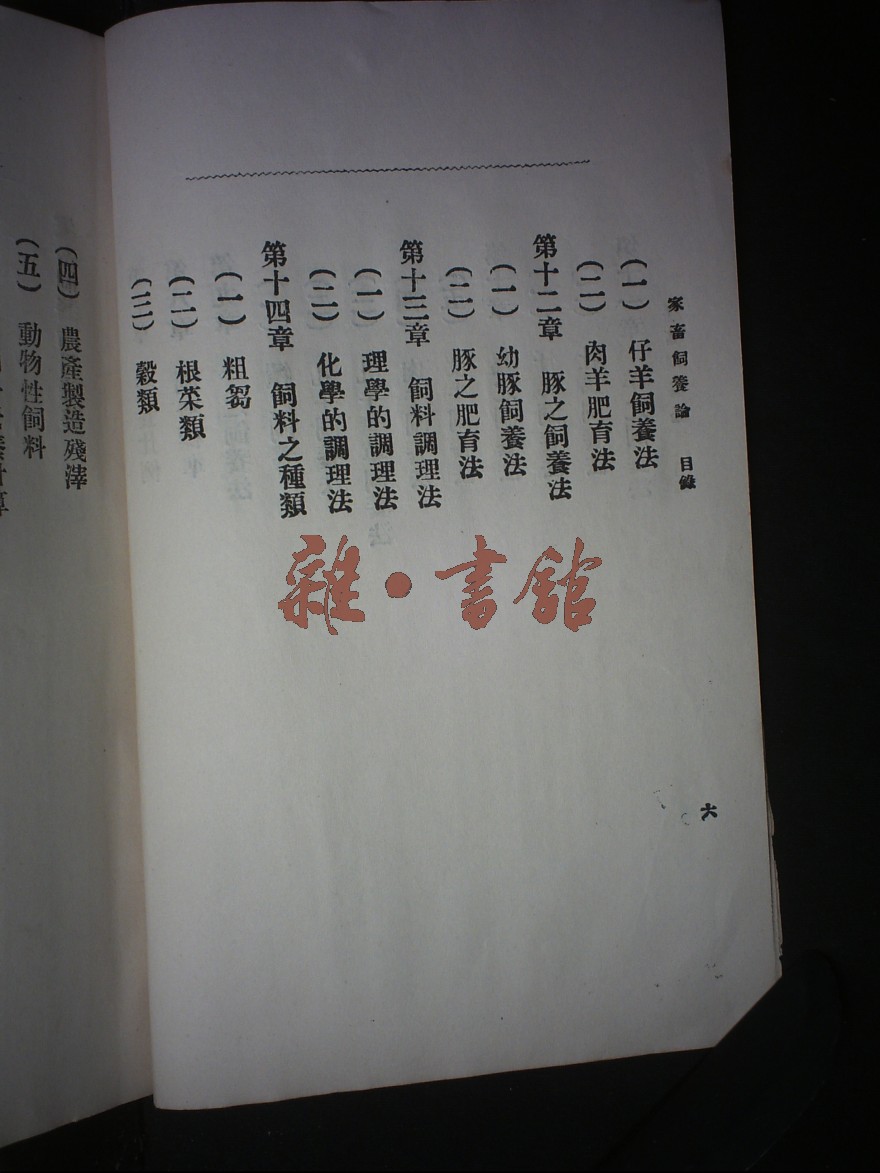 家畜飼養論 目錄
(一) 仔羊飼養法
(二) 肉羊肥育法
第十二章 豚之飼養法
(一) 幼豚飼養法
(二) 豚之肥育法
第十三章 飼料調理法
(一) 理學的調理法
(二) 化學的調理法
第十四章 飼料之種類
(一) 粗芻
(二) 根菜類
(三) 穀類
六
(四) 農產製造殘滓
(五) 動物性飼料
雜·書館